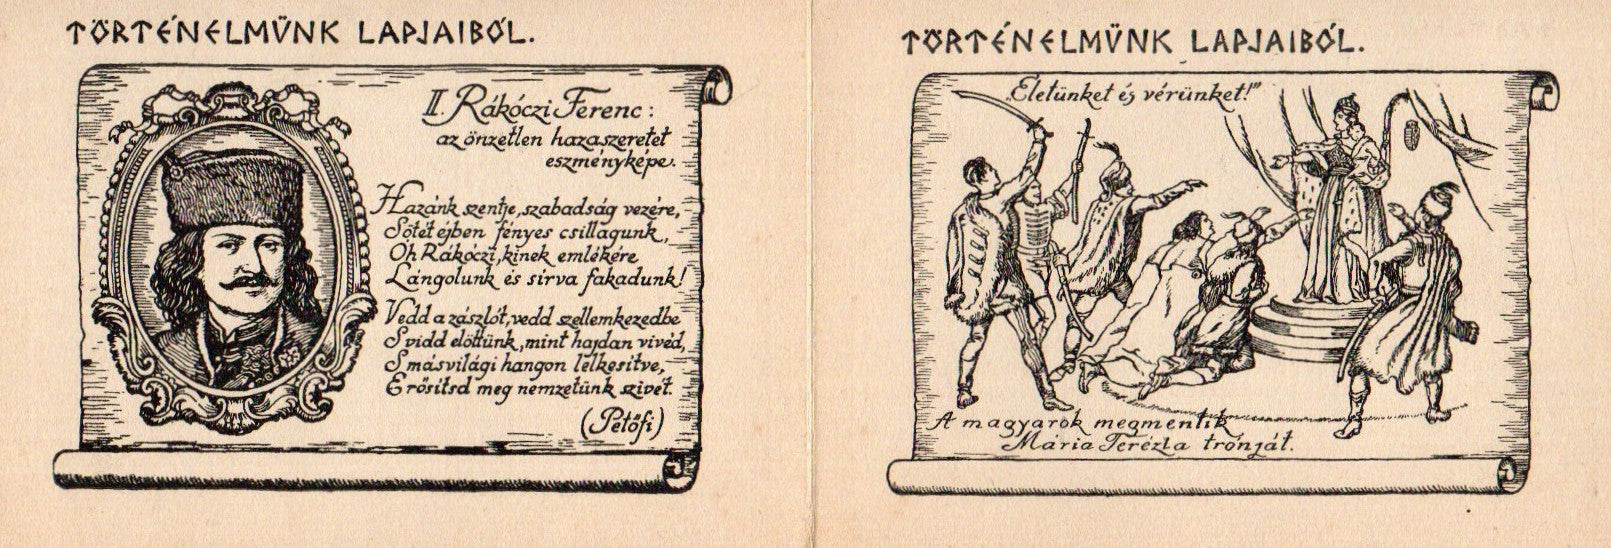 TÖRTÉNELMÜNK LAPJAIBÓL.
II. Rákóczi Ferenc:
az önzetlen hazaszeretet
eszményképe.
Hazánk szentje, szabadság vezére,
Sötét éjben fényes csillagunk,
Oh Rákóczi, kinek emlékére
Lángolunk és sírva fakadunk!
Vedd a zászlót, vedd szellemkezedbe
S vidd előttünk, mint hajdan vivéd,
S másvilági hangon lelkesítve,
Erősítsd meg nemzetünk szivét.
(Petőfi)
TÖRTÉNELMÜNK LAPJAIBÓL.
„Életünket és vérünket!”
A magyarok megmentik
Mária Terézia trónját.